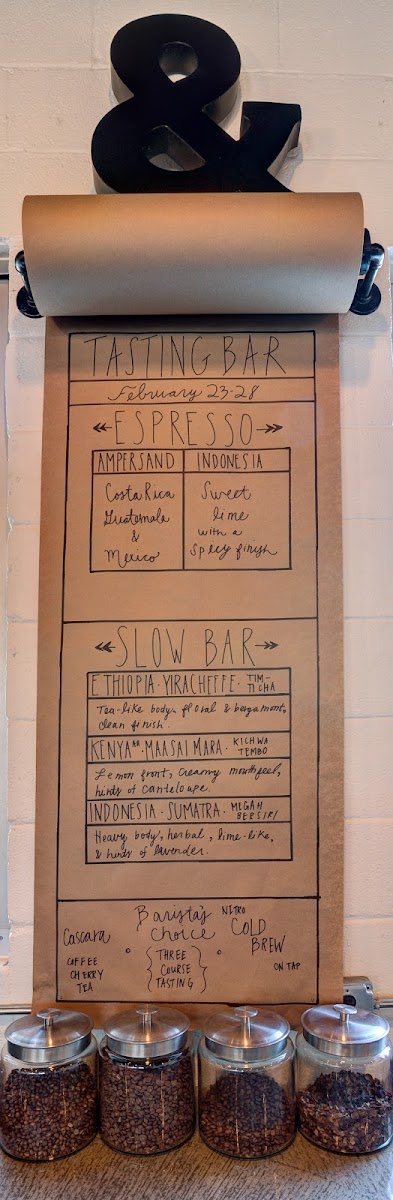 &
TASTING BAR
February 23-28
ESPRESSO
AMPERSAND
Costa Rica
Guatemala
&
Mexico
INDONESIA
Sweet
lime
with a
Spicy finish
SLOW BAR
ETHIOPIA · YIRACHEFFE · TIM-
TICHA
Tea-like body, floral & bergamont,
clean finish.
KENYA AA · MAASAI MARA · KICHWA
TEMBO
Lemon front, creamy mouthfeel,
hints of canteloupe.
INDONESIA · SUMATRA · MEGAH
BERSIRI
Heavy body, herbal, lime-like,
& hints of lavender.
Cascara
COFFEE
CHERRY
TEA
Barista's
Choice
{THREE
COURSE
TASTING}
NITRO
COLD
BREW
ON TAP